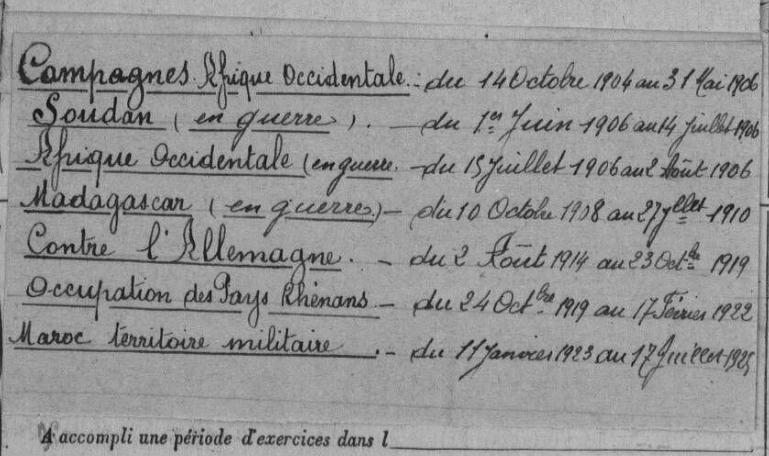 Campagnes. Afrique Occidentale : du 14 Octobre 1904 au 31 Mai 1906
Soudan (en guerre). — du 1er Juin 1906 au 14 Juillet 1906
Afrique Occidentale (en guerre. — du 15 Juillet 1906 au 2 Août 1906
Madagascar (en guerre) — du 10 Octobre 1908 au 27 Jllet 1910
Contre l'Allemagne. — du 2 Août 1914 au 23 Octbre 1919
Occupation des Pays Rhénans — du 24 Octbre 1919 au 17 Février 1922
Maroc territoire militaire. — du 11 Janvier 1923 au 17 Juillet 1925
A accompli une période d'exercices dans l